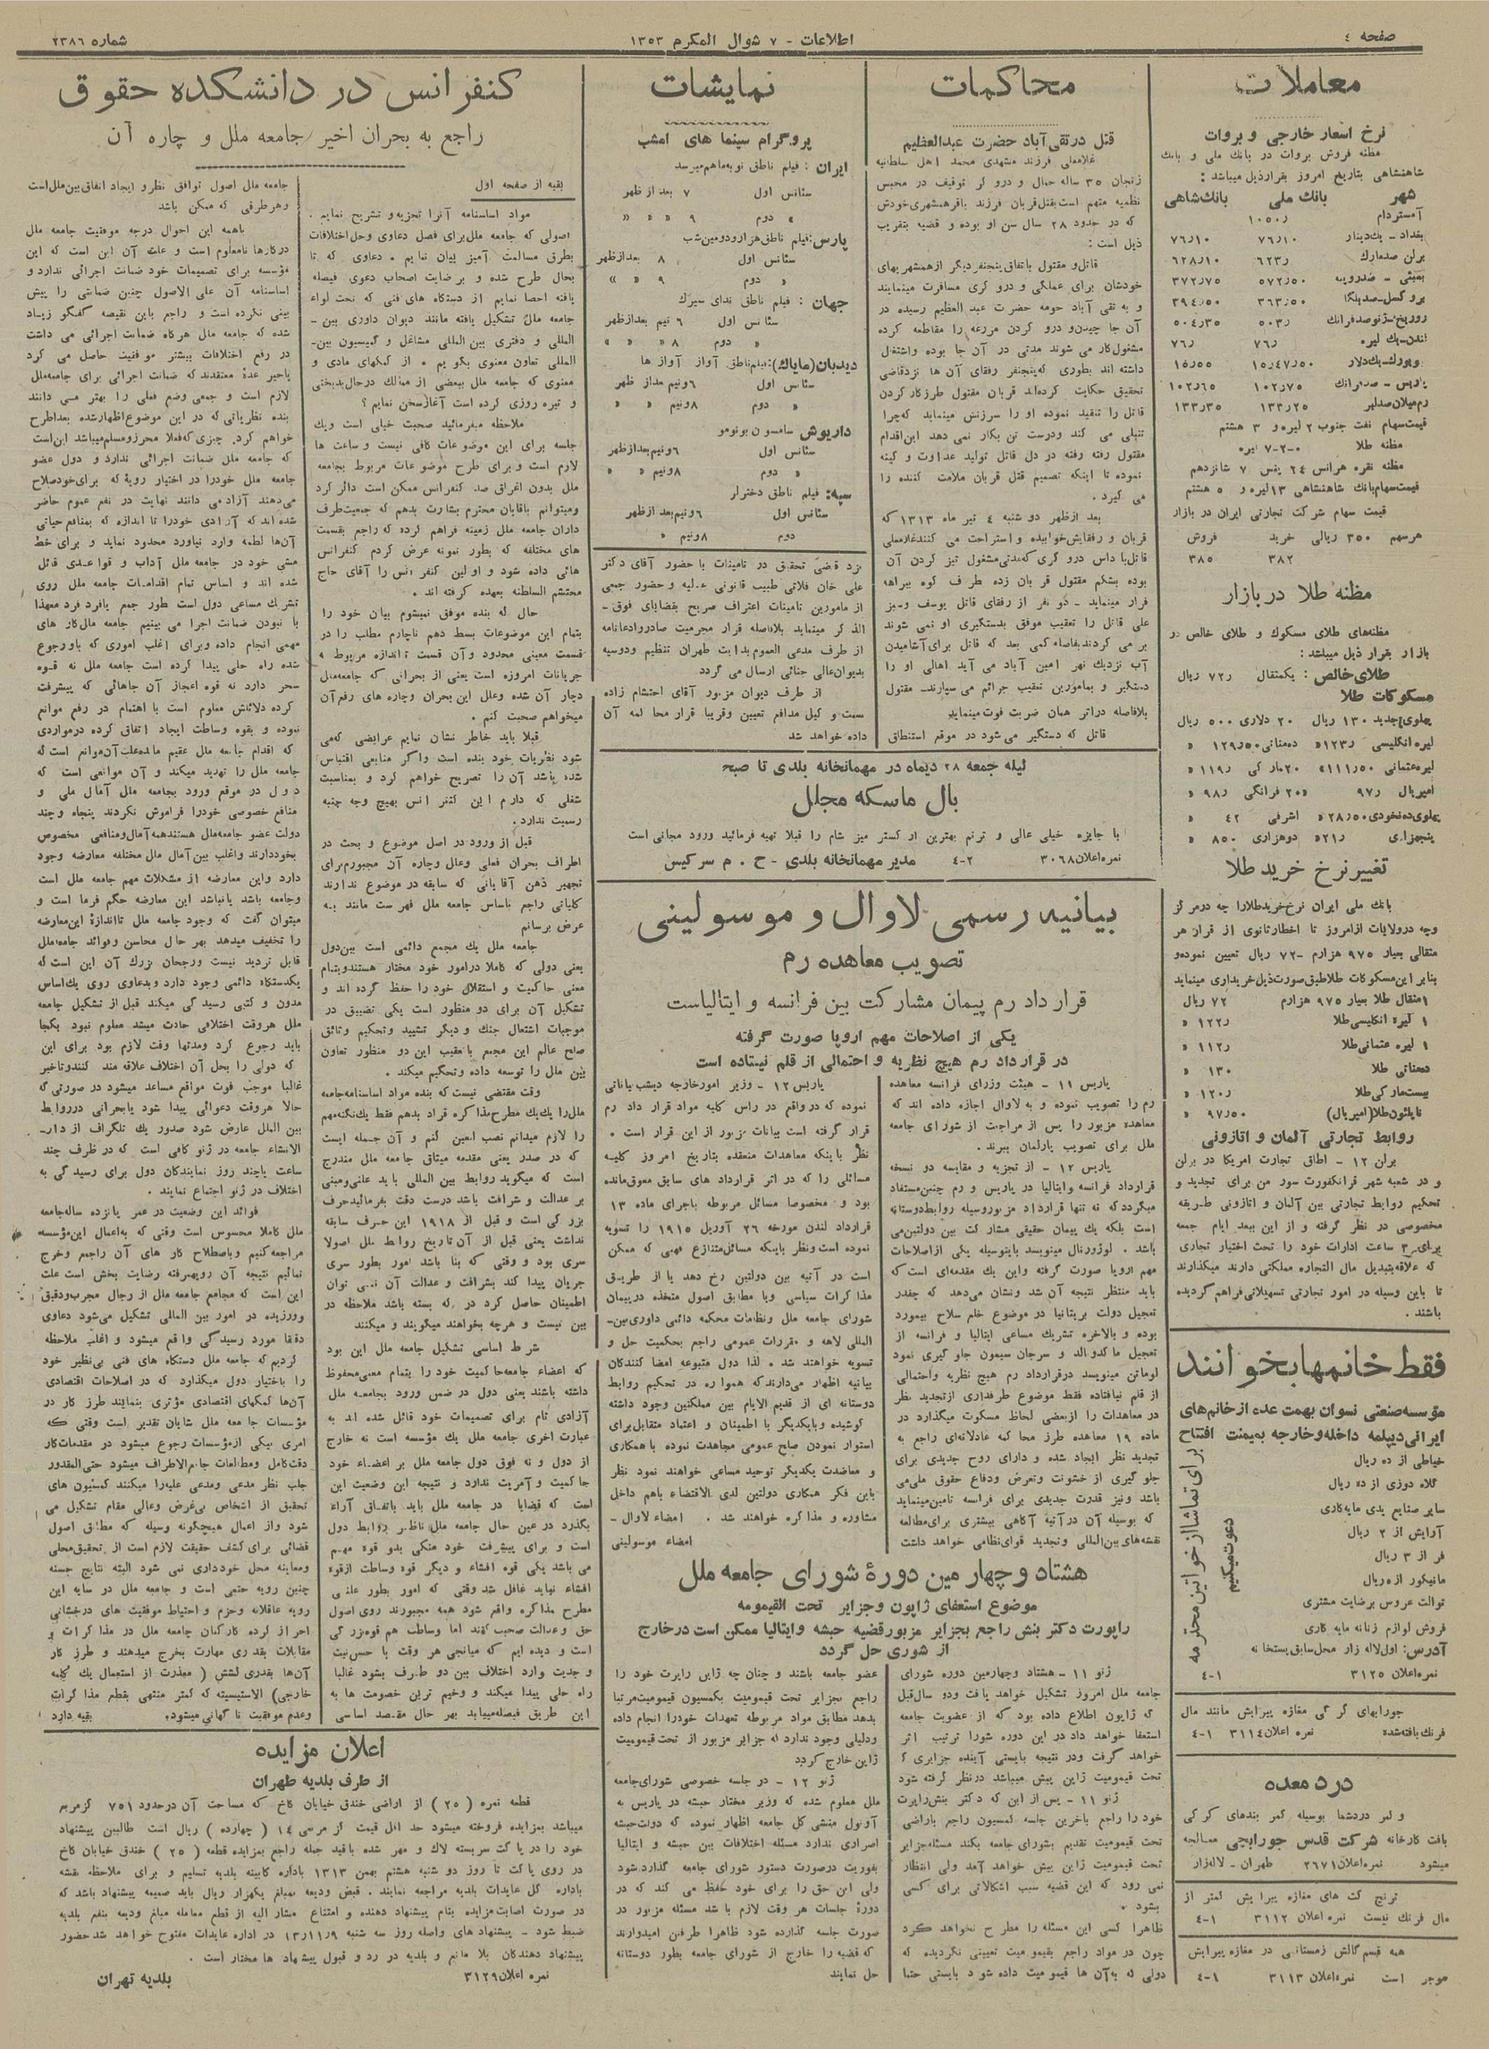 صفحه ٤
اطلاعات - ٧ شوال المکرم ١٣٥٣
شماره ٢٣٨٦
معاملات
نرخ اسعار خارجی و بروات
مظنه فروش بروات در بانك ملی و بانك
شاهنشاهی بتاریخ امروز بقرار ذیل میباشد :
شهر بانك ملی بانك شاهی
آمستردام ١٠٥٠ر
بغداد - یك دینار ٧٦ر١٠ ٧٦ر١٠
برلن صدمارك ٦٢٣ر ٦٢٨ر١٠
بمبئی - صدروپیه ٥٧٢ر٥٠ ٣٧٢ر٧٥
بروکسل - صدبلگا ٣٦٣ر٥٠ ٣٩٤ر٥٠
زوریخ - ژنو صد فرانك ٥٠٣ر ٥٠٤ر٣٥
لندن - یك لیره ٧٦ر ٧٦ر
نیویورك - یك دلار ١٥ر٤٧ر٥٠ ١٥ر٥٥
پاریس - صد فرانك ١٠٢ر٧٥ ١٠٢ر٦٥
رم میلان صد لیر ١٣٣ر٢٥ ١٣٣ر٣٥
قیمت سهام نفت جنوب ٢ لیره و ٣ هشتم
مظنه طلا ٠-٢-٧ لیره
مظنه نقره هرانس ٢٤ پنس ٧ شانزدهم
قیمت سهام بانك شاهنشاهی ١٣ لیره و ٥ هشتم
قیمت سهام شرکت تجارتی ایران در بازار
هر سهم ٣٥٠ ریالی خرید فروش
٣٨٢ ٣٨٥
مظنه طلا در بازار
مظنه‌های طلای مسکوك و طلای خالص در
بازار بقرار ذیل میباشد :
طلای خالص : یکمثقال ٧٢ر ریال
مسکوکات طلا
پهلوی جدید ١٣٠ ریال ٢٠ دلاری ٥٠٠ ریال
لیره انگلیسی ١٢٣ر » ده منانی ١٢٩ر٥٠ »
لیره عثمانی ١١١ر٥٠ » ٢٠ مارکی ١١٩ر »
امپریال ٩٧ر » ٢٠ فرانکی ٩٨ر »
پهلوی ده نخودی ٢٨ر٥٠ » اشرفی ٤٢ »
پنجهزاری ٢١ر » دوهزاری ٨٥٠ »
تغییر نرخ خرید طلا
بانك ملی ایران نرخ خرید طلا را چه در مرکز
وچه در ولایات از امروز تا اخطار ثانوی از قرار هر
مثقالی بعیار ٩٧٥ هزارم ٧٢- ریال تعیین نموده و
بنابر این مسکوکات طلا طبق صورت ذیل خریداری مینماید
١ مثقال طلا بعیار ٩٧٥ هزارم ٧٢ ریال
١ لیره انگلیسی طلا ١٢٢ر »
١ لیره عثمانی طلا ١١٢ر »
ده منانی طلا ١٣٠ »
بیست مارکی طلا ١٢٠ر »
ناپلئون طلا (امپریال) ٩٧ر٥٠ »
روابط تجارتی آلمان و اتازونی
برلن ١٢ - اطاق تجارت امریکا در برلن
و در شعبه شهر فرانکفورت سور من برای تجدید و
تحکیم روابط تجارتی بین آلمان و اتازونی طریقه
مخصوصی در نظر گرفته و از این ببعد ایام جمعه
برای ٣ ساعت ادارات خود را تحت اختیار تجاری
که علاقه بتبدیل مال التجاره مملکتی دارند میگذارند
تا باین وسیله در امور تجارتی تسهیلاتی فراهم گردیده
باشند .
فقط خانمها بخوانند
مؤسسه صنعتی نسوان بهمت عده از خانم های
ایرانی دیپلمه داخله و خارجه بمیمنت افتتاح
خیاطی از ده ریال
کلاه دوزی از ده ریال
سایر صنایع یدی مایه کاری
آرایش از ٢ ریال
فر از ٣ ریال
مانیکور از ده ریال
توالت عروس برضایت مشتری
فروش لوازم زنانه مایه کاری
برای تماشا از خواتین محترمه
دعوت میکنیم
آدرس: اول لاله زار محل سابق پستخانه
نمره اعلان ٣١٢٥ ٤-١
جورابهای کرکی مغازه پیرایش مانند مال
فرنك بافته شده نمره اعلان ٣١١٤ ٤-١
درد معده
و کمر دردشما بوسیله کمر بندهای کرکی
بافت کارخانه شرکت قدس جورابچی معالجه
میشود نمره اعلان ٢٦٧١ طهران - لاله‌زار
ترنج کت های مغازه پیرایش کمتر از
مال فرنك نیست نمره اعلان ٣١١٢ ٤-١
همه قسم گالش زمستانی در مغازه پیرایش
موجود است نمره اعلان ٣١١٣ ٤-١
محاکمات
قتل در تقی آباد حضرت عبدالعظیم
غلامعلی فرزند مشهدی محمد اهل سلطانیه
زنجان ٣٥ ساله حمال و درو گر توقیف در محبس
نظمیه متهم است بقتل قربان فرزند باقر همشهری خودش
که در حدود ٢٨ سال سن او بوده و قضیه بتقریب
ذیل است :
قاتل و مقتول باتفاق پنجنفر دیگر از همشهریهای
خودشان برای عملگی و درو گری مسافرت مینمایند
و به تقی آباد حومه حضرت عبدالعظیم رسیده در
آن جا چیدن و درو کردن مزرعه را مقاطعه کرده
مشغول کار می شوند مدتی در آن جا بوده و اشتغال
داشته اند بطوری که پنجنفر رفقای آن ها نزد قاضی
تحقیق حکایت کرده‌اند قربان مقتول طرز کار کردن
قاتل را تنقید نموده او را سرزنش مینماید که چرا
تنبلی می کند و درست تن بکار نمی دهد این اقدام
مقتول رفته رفته در دل قاتل تولید عداوت و کینه
نموده تا اینکه تصمیم قتل قربان ملامت کننده را
می گیرد .
بعد از ظهر دو شنبه ٤ تیر ماه ١٣١٣ که
قربان و رفقایش خوابیده و استراحت می کنند غلامعلی
قاتل با داس درو گری که مدتی مشغول تیز کردن آن
بوده بشکم مقتول قربان زده طرف کوه بیراهه
فرار مینماید - دو نفر از رفقای قاتل یوسف و میرز
علی قاتل را تعقیب موفق بدستگیری او نمی شوند
بر می گردند بفاصله کمی بعد که قاتل برای آشامیدن
آب نزدیك نهر امین آباد می آید اهالی او را
دستگیر و بمامورین تعقیب جرائم می سپارند - مقتول
بلافاصله در اثر همان ضربت فوت مینماید
قاتل که دستگیر می شود در موقع استنطاق
نمایشات
پروگرام سینما های امشب
ایران : فیلم ناطق نوبه ما هم میرسد
سئانس اول ٧ بعد از ظهر
» دوم ٩ » » »
پارس: فیلم ناطق هزار و دومین شب
سئانس اول ٨ بعدازظهر
» دوم ٩ » »
جهان: فیلم ناطق ندای سیرك
سئانس اول ٦ نیم بعدازظهر
» دوم ٨ » » »
دیدبان (مایاك): فیلم ناطق آواز آواز ها
سئانس اول ٦ و نیم بعداز ظهر
» دوم ٨ و نیم » »
داریوش سامسون بونومو
سئانس اول ٦ و نیم بعداز ظهر
» دوم ٨ و نیم » »
سپه: فیلم ناطق دختر لر
سئانس اول ٦ و نیم بعد از ظهر
دوم ٨ و نیم »
نزد قاضی تحقیق در تامینات با حضور آقای دکتر
علی خان فلاتی طبیب قانونی عدلیه و حضور جمعی
از مامورین تامینات اعتراف صریح بقضایای فوق -
الذکر مینماید بلافاصله قرار مجرمیت صادر و ادعانامه
از طرف مدعی العموم بدایت طهران تنظیم و دوسیه
بدیوان عالی جنائی ارسال می گردد
از طرف دیوان مزبور آقای احتشام زاده
سمت وکیل مدافع تعیین و قریبا قرار محاکمه آن
داده خواهد شد
لیله جمعه ٢٨ دیماه در مهمانخانه بلدی تا صبح
بال ماسکه مجلل
با جایزه خیلی عالی و ترنم بهترین ارکستر میز شام را قبلا تهیه فرمائید ورود مجانی است
نمره اعلان ٣٠٦٨ ٤-٢ مدیر مهمانخانه بلدی - ح . م سرکیس
بیانیه رسمی لاوال و موسولینی
تصویب معاهده رم
قرارداد رم پیمان مشارکت بین فرانسه و ایتالیاست
یکی از اصلاحات مهم اروپا صورت گرفته
در قرار داد رم هیچ نظریه و احتمالی از قلم نیفتاده است
پاریس ١١ - هیئت وزرای فرانسه معاهده
رم را تصویب نموده و به لاوال اجازه داده اند که
معاهده مزبور را پس از مراجعت از شورای جامعه
ملل برای تصویب پارلمان ببرند .
پاریس ١٢ - از تجزیه و مقایسه دو نسخه
قرارداد فرانسه و ایتالیا در پاریس و رم چنین مستفاد
میگردد که نه تنها قرارداد مزبور وسیله روابط دوستانه
است بلکه یك پیمان حقیقی مشارکت بین دولتین می
باشد . لوژورنال مینویسد باینوسیله یکی از اصلاحات
مهم اروپا صورت گرفته و این یك مقدمه‌ای است که
باید منتظر نتیجه آن شد و نشان میدهد که چقدر
تعجیل دولت بریتانیا در موضوع خلع سلاح بیمورد
بوده و بالاخره تشریك مساعی ایتالیا و فرانسه از
تعجیل ماکدوالد و سرجان سیمون جلو گیری نمود
لوماتن مینویسد در قرارداد رم هیچ نظریه و احتمالی
از قلم نیافتاده فقط موضوع طرفداری از تجدید نظر
در معاهدات را از بعضی لحاظ مسکوت میگذارد در
ماده ١٩ معاهده طرز محاکمه عادلانه‌ای راجع به
تجدید نظر ایجاد شده و دارای روح جدیدی برای
جلو گیری از خشونت و تعرض و دفاع حقوق ملی می
باشد و نیز قدرت جدیدی برای فرانسه تامین مینماید
که بوسیله آن در آتیه آگاهی بیشتری برای مطالعه
نقشه های بین المللی و تجدید قوای نظامی خواهد داشت
پاریس ١٢ - وزیر امور خارجه دیشب بیاناتی
نموده که در واقع در راس کلیه مواد قرار داد رم
قرار گرفته است بیانات مزبور از این قرار است .
نظر باینکه معاهدات منعقده بتاریخ امروز کلیه
مسائلی را که در اثر قرارداد های سابق معوق مانده
بود و مخصوصا مسائل مربوطه باجرای ماده ١٣
قرارداد لندن مورخه ٢٦ آوریل ١٩١٥ را تسویه
نموده است و نظر باینکه مسائل متنازع فیهی که ممکن
است در آتیه بین دولتین رخ دهد یا از طریق
مذاکرات سیاسی و یا مطابق اصول متخذه در پیمان
شورای جامعه ملل و نظامات محکمه دائمی داوری بین -
المللی لاهه و مقررات عمومی راجع بحکمیت حل و
تسویه خواهند شد . لذا دول متبوعه امضا کنندگان
بیانیه اظهار میدارند که همواره در تحکیم روابط
دوستانه ای از قدیم الایام بین مملکتین وجود داشته
کوشیده و با یکدیگر با اطمینان و اعتماد متقابل برای
استوار نمودن صلح عمومی مجاهدت نموده با همکاری
و معاضدت یکدیگر توحید مساعی خواهند نمود نظر
باین فکر همکاری دولتین لدی الاقتضاء باهم داخل
مشاوره و مذاکره خواهند شد . امضاء لاوال -
امضاء موسولینی
هشتاد و چهارمین دورهٔ شورای جامعه ملل
موضوع استعفای ژاپون و جزایر تحت القیمومه
راپورت دکتر بنش راجع بجزایر مزبور قضیه حبشه و ایتالیا ممکن است در خارج
از شوری حل گردد
ژنو ١١ - هشتاد و چهارمین دوره شورای
جامعه ملل امروز تشکیل خواهد یافت و دو سال قبل
که ژاپون اطلاع داده بود که از عضویت جامعه
استعفا خواهد داد در این دوره شورا ترتیب اثر
خواهد گرفت و در نتیجه بایستی آینده جزایری که
تحت قیمومیت ژاپن پیش میباشد در نظر گرفته شود
ژنو ١١ - پس از این که دکتر بنش راپرت
خود را راجع باخرین جلسه کمسیون راجع باراضی
تحت قیمومیت تقدیم بشورای جامعه بکند مسئله جزایر
تحت قیمومیت ژاپن پیش خواهد آمد ولی انتظار
نمی رود که این قضیه سبب اشکالاتی برای کسی
بشود .
ظاهرا کسی این مسئله را مطرح نخواهد کرد
چون در مواد راجع بقیمومیت تعیینی نگردیده که
دولی که به آن ها قیمومیت داده شود بایستی حتما
عضو جامعه باشند و چنان چه ژاپن راپرت خود را
راجع بجزایر تحت قیمومیت بکمسیون قیمومیت مرتبا
بدهد مطابق مواد مربوطه تعهدات خود را انجام داده
و دلیلی وجود ندارد که جزایر مزبور از تحت قیمومیت
ژاپن خارج گردد
ژنو ١٢ - در جلسه خصوصی شورای جامعه
ملل معلوم شده که وزیر مختار حبشه در پاریس به
آونول منشی کل جامعه اظهار نموده که دولت حبشه
اصراری ندارد مسئله اختلافات بین حبشه و ایتالیا
بفوریت در صورت دستور شورای جامعه گذارد شود
ولی این حق را برای خود حفظ می کند که در
دورهٔ جلسات هر وقت لازم باشد مسئله مزبور در
صورت جلسه گذارده شود ظاهرا طرفین امیدوارند
که قضیه را خارج از شورای جامعه بطور دوستانه
حل نمایند
کنفرانس در دانشکده حقوق
راجع به بحران اخیر جامعه ملل و چاره آن
بقیه از صفحه اول
مواد اساسنامه آنرا تجزیه و تشریح نمایم .
اصولی که جامعه ملل برای فصل دعاوی و حل اختلافات
بطرق مسالمت آمیز بیان نمایم . دعاوی که تا
بحال طرح شده و برضایت اصحاب دعوی فیصله
یافته احصا نمایم از دستگاه های فنی که تحت لواء
جامعه ملل تشکیل یافته مانند دیوان داوری بین -
المللی و دفتری بین المللی مشاغل و کمیسیون بین -
المللی تعاون معنوی بگویم . از کمکهای مادی و
معنوی که جامعه ملل ببعضی از ممالك در حال بدبختی
و تیره روزی کرده است آغاز سخن نمایم ؟
ملاحظه میفرمائید صحبت خیلی است و یك
جلسه برای این موضوعات کافی نیست و ساعت ها
لازم است و برای طرح موضوعات مربوط بجامعه
ملل بدون اغراق صد کنفرانس ممکن است دائر کرد
و میتوانم باقایان محترم بشارت بدهم که جمعیت طرف
داران جامعه ملل زمینه فراهم کرده که راجع بقسمت
های مختلفه که بطور نمونه عرض کردم کنفرانس
هائی داده شود و اولین کنفرانس را آقای حاج
محتشم السلطنه بعهده گرفته اند .
حال که بنده موفق نمیشوم بیان خود را
بتمام این موضوعات بسط دهم ناچارم مطلب را در
قسمت معینی محدود و آن قسمت تا اندازه مربوط به
جریانات امروزه است یعنی از بحرانی که جامعه ملل
دچار آن شده و علل این بحران و چاره های رفع آن
میخواهم صحبت کنم .
قبلا باید خاطر نشان نمایم عرایضی که می
شود نظریات خود بنده است و اگر از منابعی اقتباس
شده باشد آن را تصریح خواهم کرد و بمناسبت
شغلی که دارم این کنفرانس بهیچ وجه جنبه
رسمیت ندارد .
قبل از ورود در اصل موضوع و بحث در
اطراف بحران فعلی و علل و چاره آن مجبورم برای
تجهیز ذهن آقایانی که سابقه در موضوع ندارند
کلیاتی راجع باساس جامعه ملل فهرست مانند به
عرض برسانم
جامعه ملل یك مجمع دائمی است بین دول
یعنی دولی که کاملا در امور خود مختار هستند و بتمام
معنی حاکمیت و استقلال خود را حفظ کرده اند و
تشکیل آن برای دو منظور است یکی تضییق در
موجبات اشتعال جنك و دیگر تشیید و تحکیم وثائق
صلح عالم این مجمع با تعقیب این دو منظور تعاون
بین ملل را توسعه داده و تحکیم میکند .
وقت مقتضی نیست که بنده مواد اساسنامه جامعه
ملل را یك یك مطرح مذاکره قراد بدهم فقط یك نکته مهم
را لازم میدانم نصب العین کنم و آن جمله ایست
که در صدر یعنی مقدمه میثاق جامعه ملل مندرج
است که میگوید روابط بین المللی باید علنی و مبنی
بر عدالت و شرافت باشد درست دقت بفرمائید حرف
بزرگی است و قبل از ١٩١٨ این حرف سابقه
نداشت یعنی قبل از آن تاریخ روابط ملل اصولا
سری بود و وقتی که بنا باشد امور بطور سری
جریان پیدا کند بشرافت و عدالت آن نمی توان
اطمینان حاصل کرد در که بسته باشد ملاحظه در
بین نیست و هرچه بخواهند میگویند و میکنند
شرط اساسی تشکیل جامعه ملل این بود
که اعضاء جامعه حاکمیت خود را بتمام معنی محفوظ
داشته باشند یعنی دول در ضمن ورود بجامعه ملل
آزادی تام برای تصمیمات خود قائل شده اند به
عبارت اخری جامعه ملل یك مؤسسه است نه خارج
از دول و نه فوق دول جامعه ملل بر اعضاء خود
حاکمیت و آمریت ندارد و نتیجه این وضعیت این
است که قضایا در جامعه ملل باید باتفاق آراء
بگذرد در عین حال جامعه ملل ناظر روابط دول
است و برای پیشرفت خود متکی بدو قوه مهم
می باشد یکی قوه افشاء و دیگر قوه وساطت از قوه
افشاء نباید غافل شد وقتی که امور بطور علنی
مطرح مذاکره واقع شود همه مجبورند روی اصول
حق و عدالت صحبت کنند اما وساطت هم قوه بزرگی
است و دیده ایم که میانجی هر وقت با حسن نیت
و جدیت وارد اختلاف بین دو طرف بشود غالبا
راه حلی پیدا میکند و وخیم ترین خصومت ها به
این طریق فیصله مییابد بهر حال مقصد اساسی
جامعه ملل اصول توافق نظر و ایجاد اتفاق بین ملل است
و هر طرفی که ممکن باشد
با همه این احوال درجه موفقیت جامعه ملل
در کارها نامعلوم است و علت آن این است که این
مؤسسه برای تصمیمات خود ضمانت اجرائی ندارد و
اساسنامه آن علی الاصول چنین ضمانتی را پیش
بینی نکرده است و راجع باین نقیصه گفتگو زیاد
شده که جامعه ملل هرگاه ضمانت اجرائی می داشت
در رفع اختلافات بیشتر موفقیت حاصل می کرد
یا خیر عدهٔ معتقدند که ضمانت اجرائی برای جامعه ملل
لازم است و جمعی وضع فعلی را بهتر می دانند
بنده نظریاتی که در این موضوع اظهار شده بعدا طرح
خواهم کرد. چیزی که فعلا محرز و مسلم میباشد این است
که جامعه ملل ضمانت اجرائی ندارد و دول عضو
جامعه ملل خود را در اختیار رویهٔ که برای خود صلاح
می دهند آزاد می دانند نهایت در نفع عموم حاضر
شده اند که آزادی خود را تا اندازه که بمنافع حیاتی
آن ها لطمه وارد نیاورد محدود نماید و برای خط
مشی خود در جامعه ملل آداب و قواعدی قائل
شده اند و اساس تمام اقدامات جامعه ملل روی
تشریك مساعی دول است بطور جمع یا فرد فرد معهذا
با نبودن ضمانت اجرا می بینیم جامعه ملل کار های
مهمی انجام داده و برای اغلب اموری که باو رجوع
شده راه حلی پیدا کرده است جامعه ملل نه قوه
سحر دارد نه قوه اعجاز آن جاهائی که پیشرفت
کرده دلائلش معلوم است با اهتمام در رفع موانع
نموده و بقوه وساطت ایجاد اتفاق کرده در مواردی
که اقدام جامعه ملل عقیم مانده علت آن موانع است که
جامعه ملل را تهدید میکند و آن موانعی است که
دول در موقع ورود بجامعه ملل آمال ملی و
منافع خصوصی خود را فراموش نکردند پنجاه و چند
دولت عضو جامعه ملل هستند همه آمال و منافعی مخصوص
بخود دارند و اغلب بین آمال ملل مختلفه معارضه وجود
دارد و این معارضه از مشکلات مهم جامعه ملل است
و جامعه باشد یا نباشد این معارضه حکم فرما است و
میتوان گفت که وجود جامعه ملل تا اندازهٔ این معارضه
را تخفیف میدهد بهر حال محاسن و فوائد جامعه ملل
قابل تردید نیست و رجحان بزرك آن این است که
یك دستگاه دائمی وجود دارد و بدعاوی روی یك اساس
مدون و کتبی رسیدگی میکند قبل از تشکیل جامعه
ملل هر وقت اختلافی حادث میشد معلوم نبود بکجا
باید رجوع کرد و مدتها وقت لازم بود برای این
که دولی را بحل آن اختلاف علاقه مند کنند و تاخیر
غالبا موجب فوت مواقع مساعد میشود در صورتی که
حالا هر وقت دعوائی پیدا شود یا بحرانی در روابط
بین الملل عارض شود صدور یك تلگراف از دار -
الانشاء جامعه در ژنو کافی است که در ظرف چند
ساعت یا چند روز نمایندگان دول برای رسیدگی به
اختلاف در ژنو اجتماع نمایند .
فوائد این وضعیت در عمر پانزده ساله جامعه
ملل کاملا محسوس است وقتی که به اعمال این مؤسسه
مراجعه کنیم و باصطلاح کار های آن راجمع و خرج
نمائیم نتیجه آن رویهمرفته رضایت بخش است علت
این است که مجامع جامعه ملل از رجال مجرب و دقیق
و ورزیده در امور بین المللی تشکیل می شود دعاوی
دقتا مورد رسیدگی واقع میشود و اغلب ملاحظه
کردیم که جامعه ملل دستگاه های فنی بی نظیر خود
را باختیار دول میگذارد که در اصلاحات اقتصادی
آن‌ها کمکهای اقتصادی مؤثری بنمایند طرز کار در
مؤسسات جامعه ملل شایان تقدیر است وقتی که
امری بیکی از مؤسسات رجوع میشود در مقدمات کار
دقت کامل و مطالعات جامع الاطراف میشود حتی المقدور
جلب نظر مدعی و مدعی علیه را میکنند کمسیون های
تحقیق از اشخاص بی غرض و عالی مقام تشکیل می
شود و از اعمال هیچگونه وسیله که مطابق اصول
قضائی برای کشف حقیقت لازم است از تحقیق محلی
و معاینه محل خودداری نمی شود البته نتایج حسنه
چنین رویه حتمی است و جامعه ملل در سایه این
رویه عاقلانه و حزم و احتیاط موفقیت های درخشانی
احراز کرده کارکنان جامعه ملل در مذاکرات و
مقابلات بقدری مهارت بخرج میدهند و طرز کار
آن ها بقدری کشش ( معذرت از استعمال یك کلمه
خارجی) الاستیسیته که کمتر منتهی بقطع مذاکرات
و عدم موفقیت ناگهانی میشود. بقیه دارد
اعلان مزایده
از طرف بلدیه طهران
قطعه نمره ( ٢٥ ) از اراضی خندق خیابان کاخ که مساحت آن در حدود ٧٥١ گز مربع
میباشد بمزایده فروخته میشود حد اقل قیمت از مرسی ١٤ ( چهارده ) ریال است طالبین پیشنهاد
خود را در پاکت سربسته لاك و مهر شده باقید جمله راجع بمزایده قطعه ( ٢٥ ) خندق خیابان کاخ
در روی پاکت تا روز دو شنبه هشتم بهمن ١٣١٣ باداره کابینه بلدیه تسلیم و برای ملاحظه نقشه
باداره کل عایدات بلدیه مراجعه نمایند . قبض ودیعه بمبلغ یکهزار ریال باید ضمیمه پیشنهاد باشد که
در صورت اصابت مزایده بنام پیشنهاد دهنده و امتناع مشار الیه از قطع معامله مبلغ ودیعه بنفع بلدیه
ضبط شود - پیشنهاد های واصله روز سه شنبه ١٣/١١/٩ در اداره عایدات مفتوح خواهد شد حضور
پیشنهاد دهندگان بلا مانع و بلدیه در رد و قبول پیشنهاد ها مختار است .
نمره اعلان ٣١٢٩ بلدیه تهران